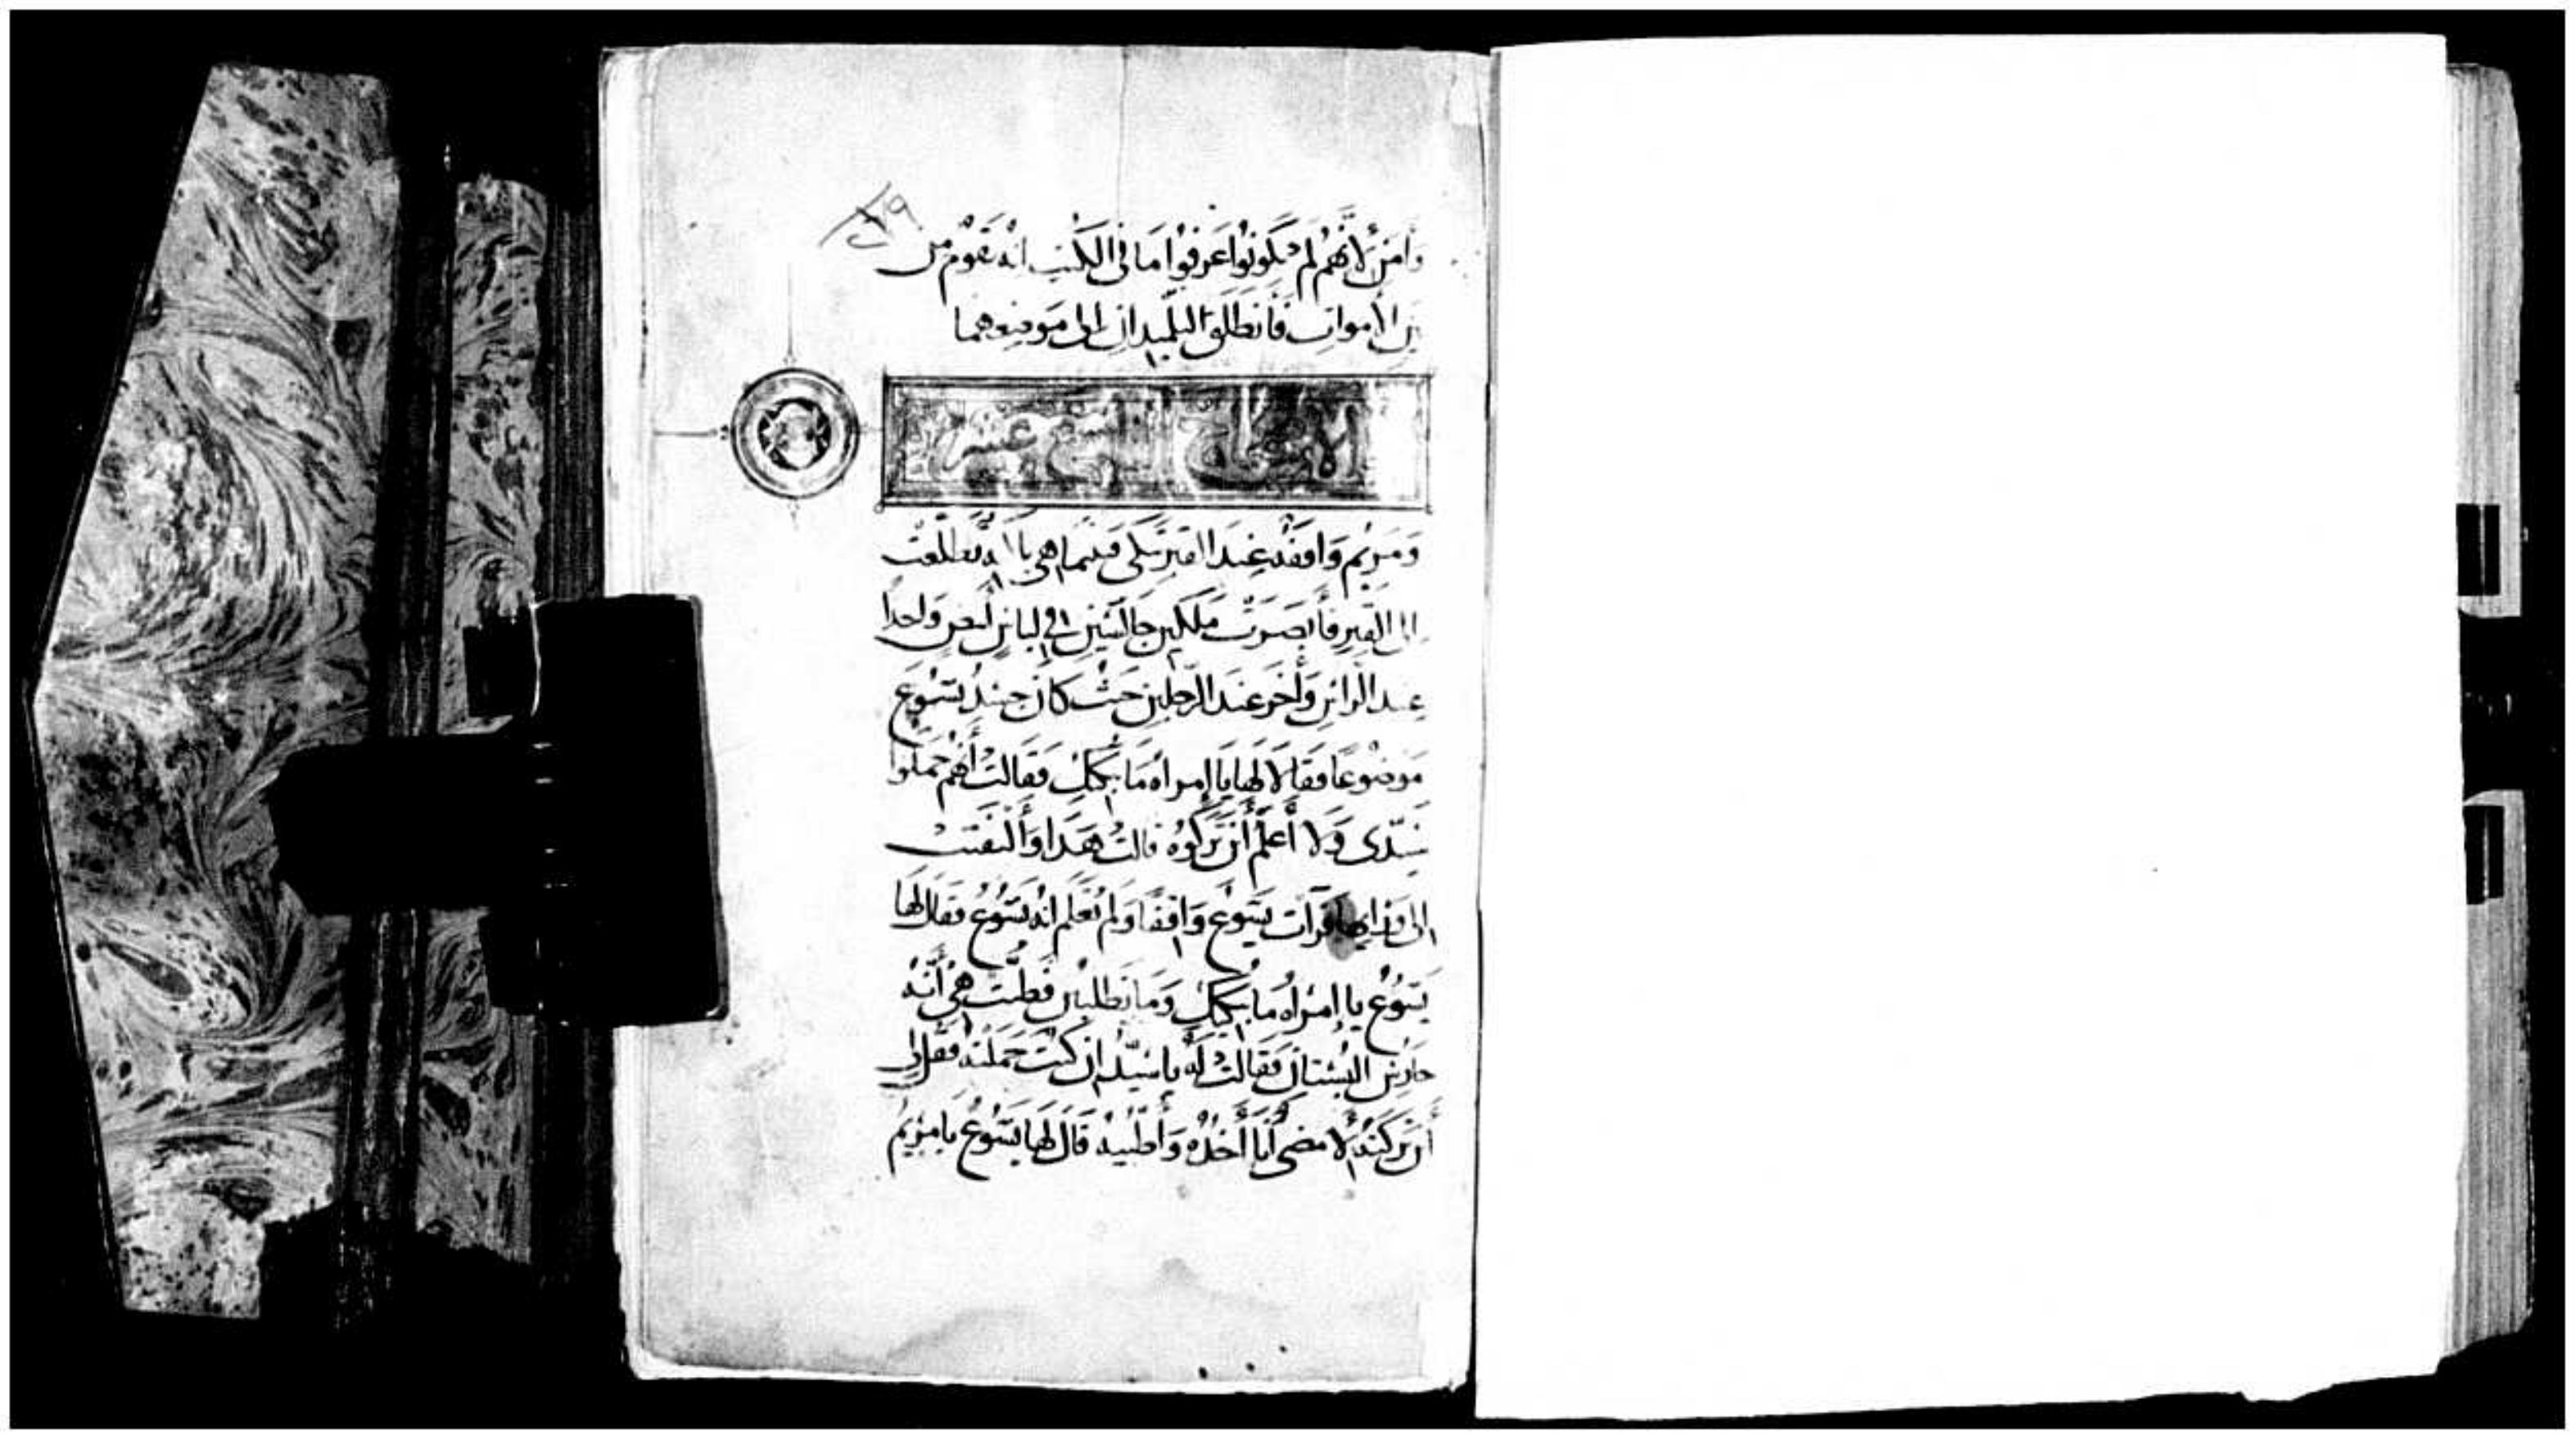 وَأمَنَ لأنَّهُمُ لَم يَكُونُوا عَرفُوا مَا فى الكتبِ انه يَقُوم من
بين الأمواتِ فَأنطَلَقَ التلميذانِ إلى مَوضِعِهما
الاصحاح التاسع عشر
وَمَريَم وَاقفه عِندَ القبر تبكى فبينما هى باكيه تَطلّعَت
الى القَبرِ فأبصَرَت ملَكَين جَالسَينِ فى لباسٍ أبيض وَاحدًا
عِند الراسِ وَأخَر عندَ الرجلين حَيثُ كانَ جسدُ يَسُوعَ
مَوضُوعًا فقالا لها يا إمراه مَا يبكيكِ فقالت أنهم حملوا
سَيّدى وَلا أعلَم أينَ تَركُوهُ قالت هَذا وَألتَفَتَت
الى وَرايها فرَأت يَسوع وَاقِفًا وَلم تَعلَم انه يَسُوع فقال لها
يَسُوعُ يا إمرَاه ما يبكيكِ وَما تطلبين فَظنت هى أنّهُ
حارس البُستان فقالت لَهُ يا سَيّد ان كنتَ حَمَلتَه فقل لى
أين تركتَهُ لأمضى أنا أخذُه وَأطَيِّبه قال لها يَسُوعُ يا مريم